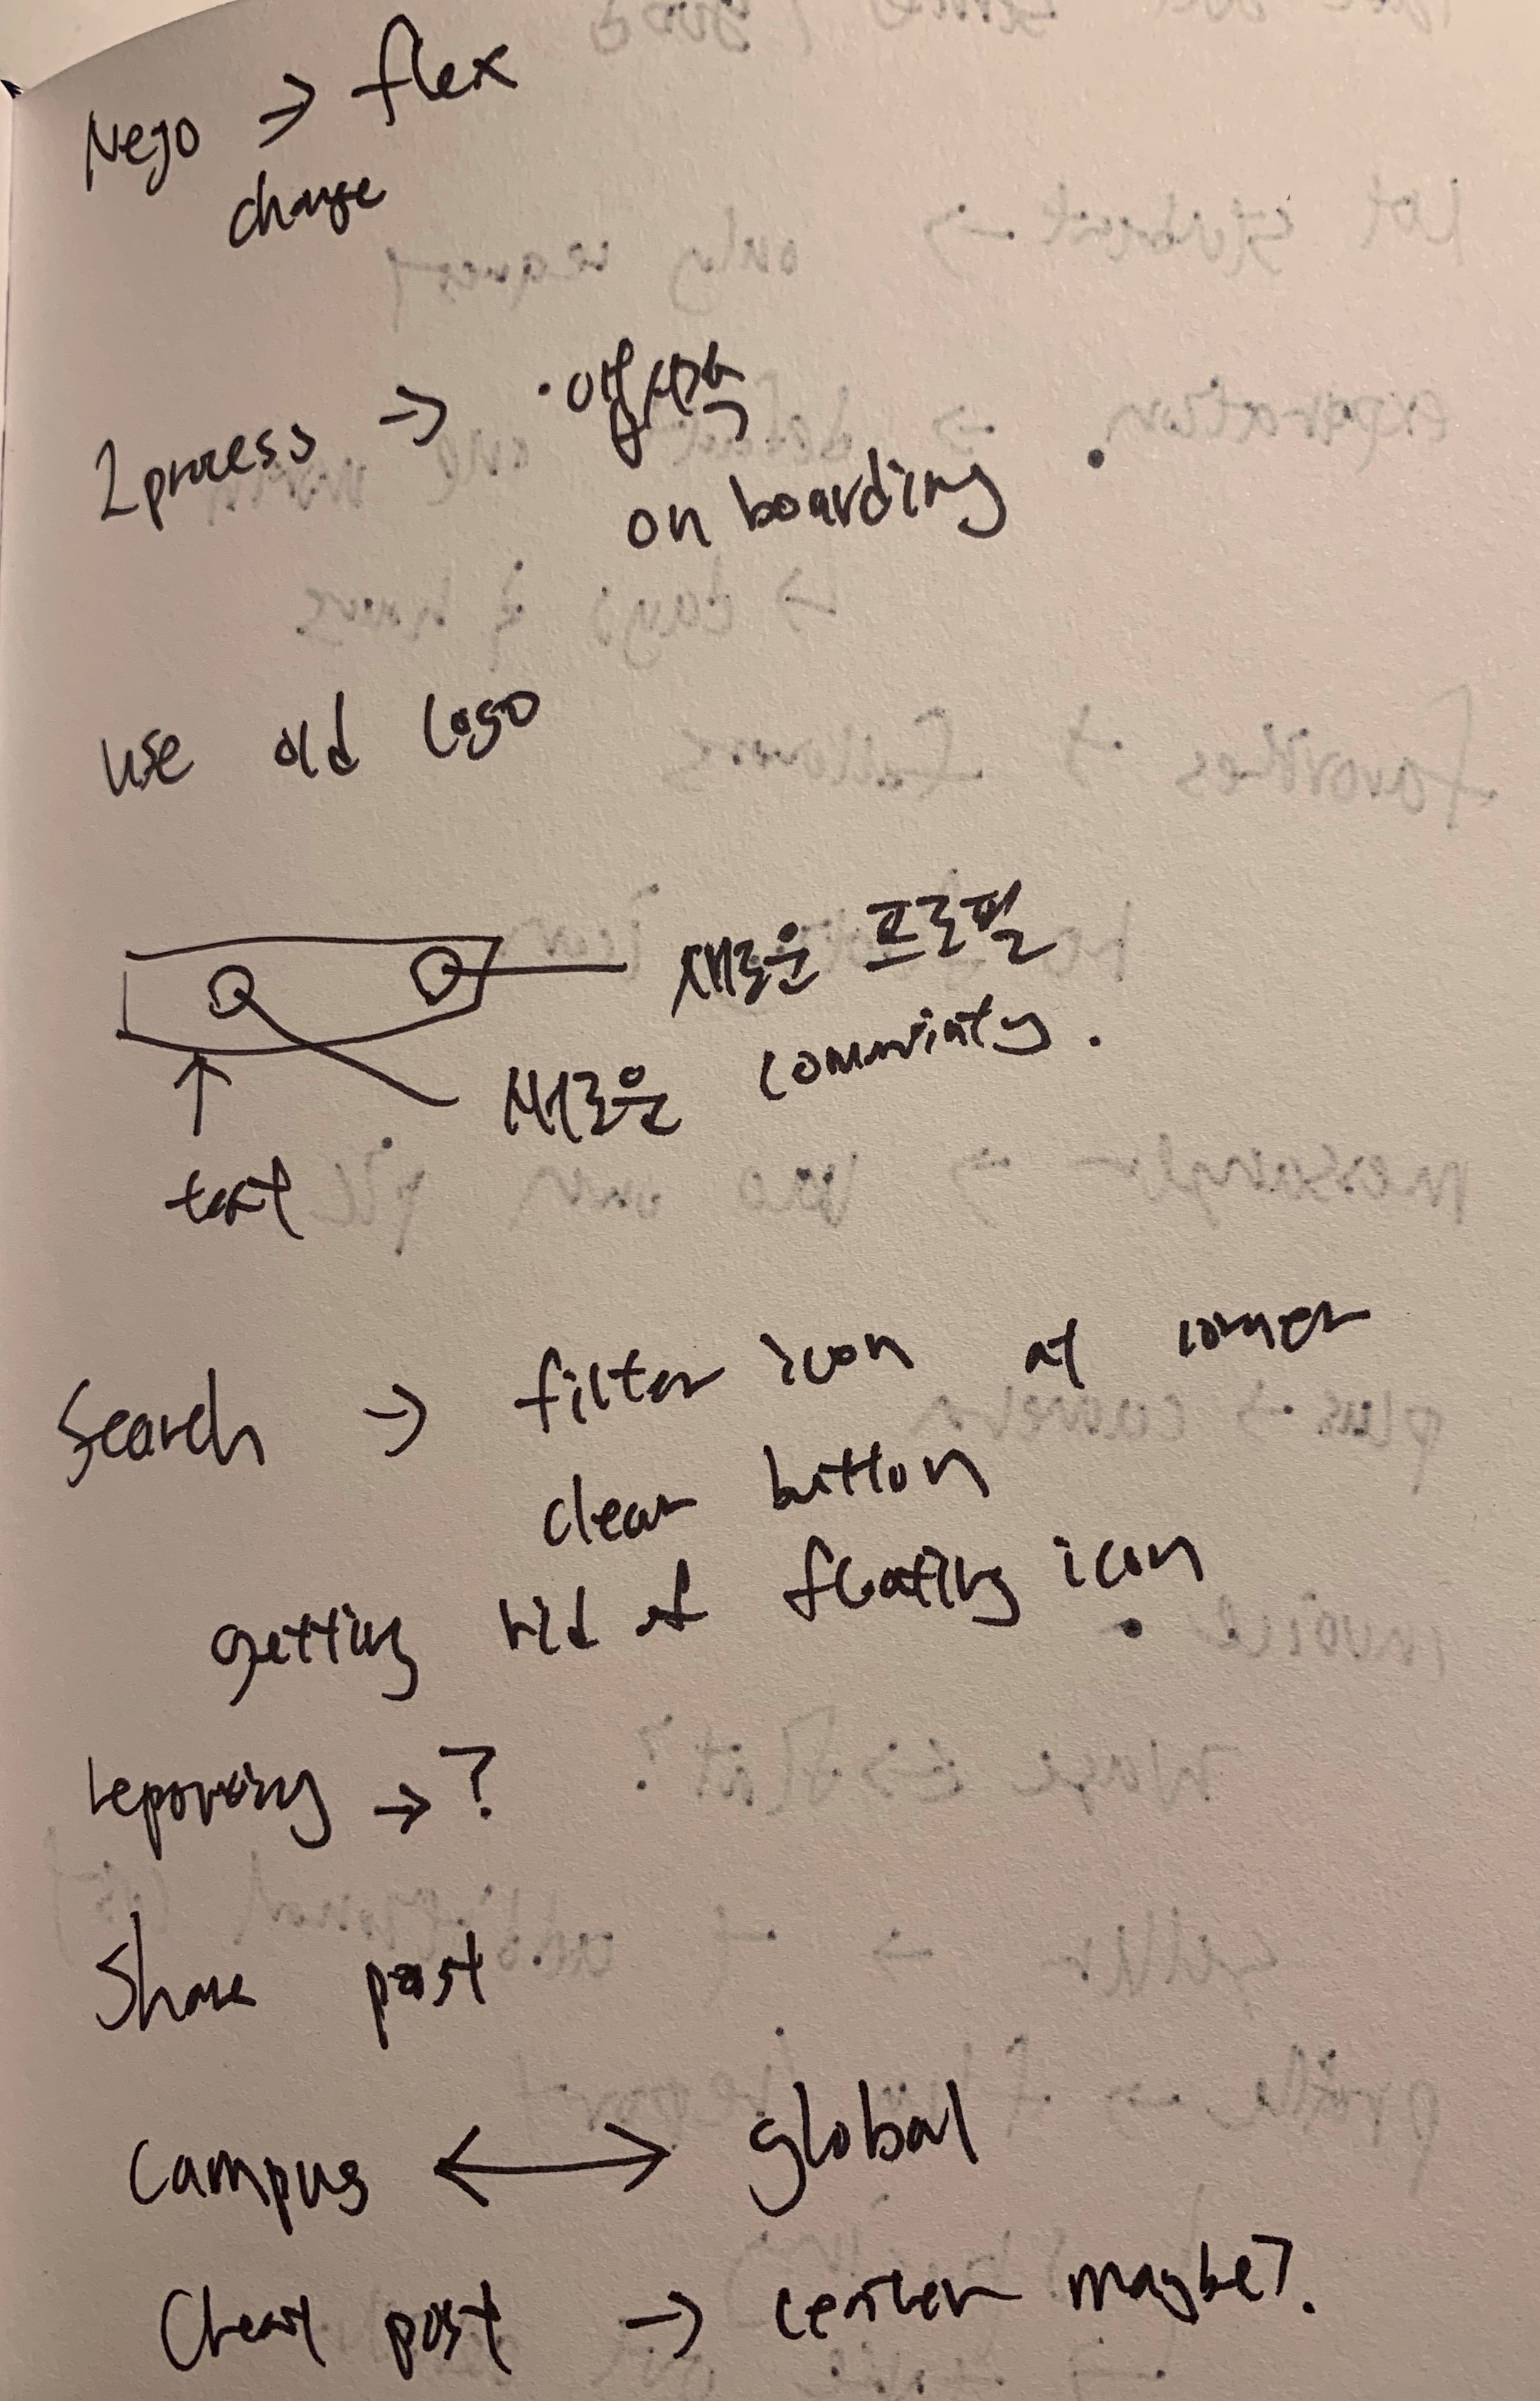 Nego → flex
change
2 process →
on boarding
use old logo
새로운 프로필
새로운 commuinty.
text
Search → filter icon at corner
clear button
getting rid of floating icon
reporting → ?
Share post
Campus ↔ global
post → center maybe?.